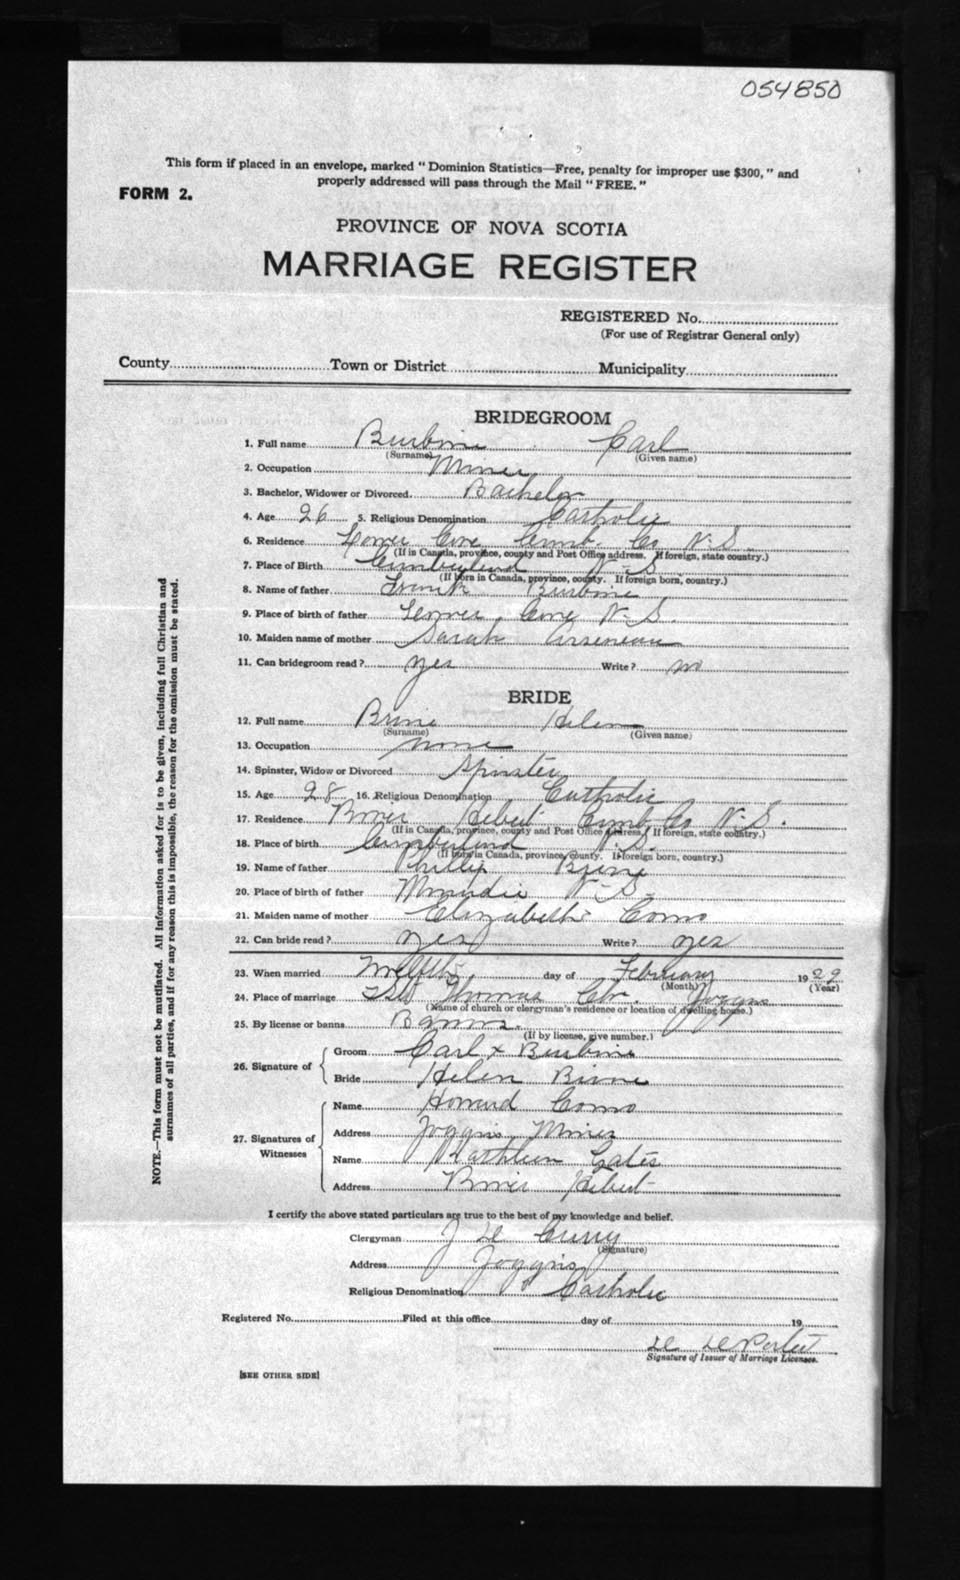 054850
This form if placed in an envelope, marked "Dominion Statistics—Free, penalty for improper use $300," and
properly addressed will pass through the Mail "FREE."
FORM 2.
PROVINCE OF NOVA SCOTIA
MARRIAGE REGISTER
REGISTERED No.
(For use of Registrar General only)
County Town or District Municipality
BRIDEGROOM
1. Full name Burbine Carl
(Surname) (Given name)
2. Occupation Miner
3. Bachelor, Widower or Divorced. Bachelor
4. Age 26 5. Religious Denomination Catholic
6. Residence Lower Cove Cumb. Co N.S.
(If in Canada, province, county and Post Office address. If foreign, state country.)
7. Place of Birth Cumberland N.S
(If born in Canada, province, county. If foreign born, country.)
8. Name of father Frank Burbine
9. Place of birth of father Lower Cove N.S.
10. Maiden name of mother Sarah Arseneau
11. Can bridegroom read? yes Write? no
BRIDE
12. Full name Brine Helen
(Surname) (Given name)
13. Occupation none
14. Spinster, Widow or Divorced Spinster
15. Age 28 16. Religious Denomination Catholic
17. Residence River Hebert Cumb. Co N.S.
(If in Canada, province, county and Post Office address. If foreign, state country.)
18. Place of birth Cumberland N.S.
(If born in Canada, province, county. If foreign born, country.)
19. Name of father Phillip Brine
20. Place of birth of father Minudie N.S.
21. Maiden name of mother Elizabeth Como
22. Can bride read? yes Write? yes
23. When married Twelfth day of February 1929
(Month) (Year)
24. Place of marriage Thomas Ch. Joggins
(Name of church or clergyman's residence or location of dwelling house.)
25. By license or banns Banns.
(If by license, give number.)
26. Signature of
Groom Carl x Burbine
Bride Helen Brine
27. Signatures of Witnesses
Name Howard Como
Address Joggins Mines
Name Kathleen Gates
Address River Hebert
I certify the above stated particulars are true to the best of my knowledge and belief.
Clergyman J H Curry
(Signature)
Address Joggins
Religious Denomination Catholic
Registered No. Filed at this office day of 19
Signature of Issuer of Marriage Licenses.
[SEE OTHER SIDE]
NOTE.—This form must not be mutilated. All information asked for is to be given, including full Christian and
surnames of all parties, and if for any reason this is impossible, the reason for the omission must be stated.